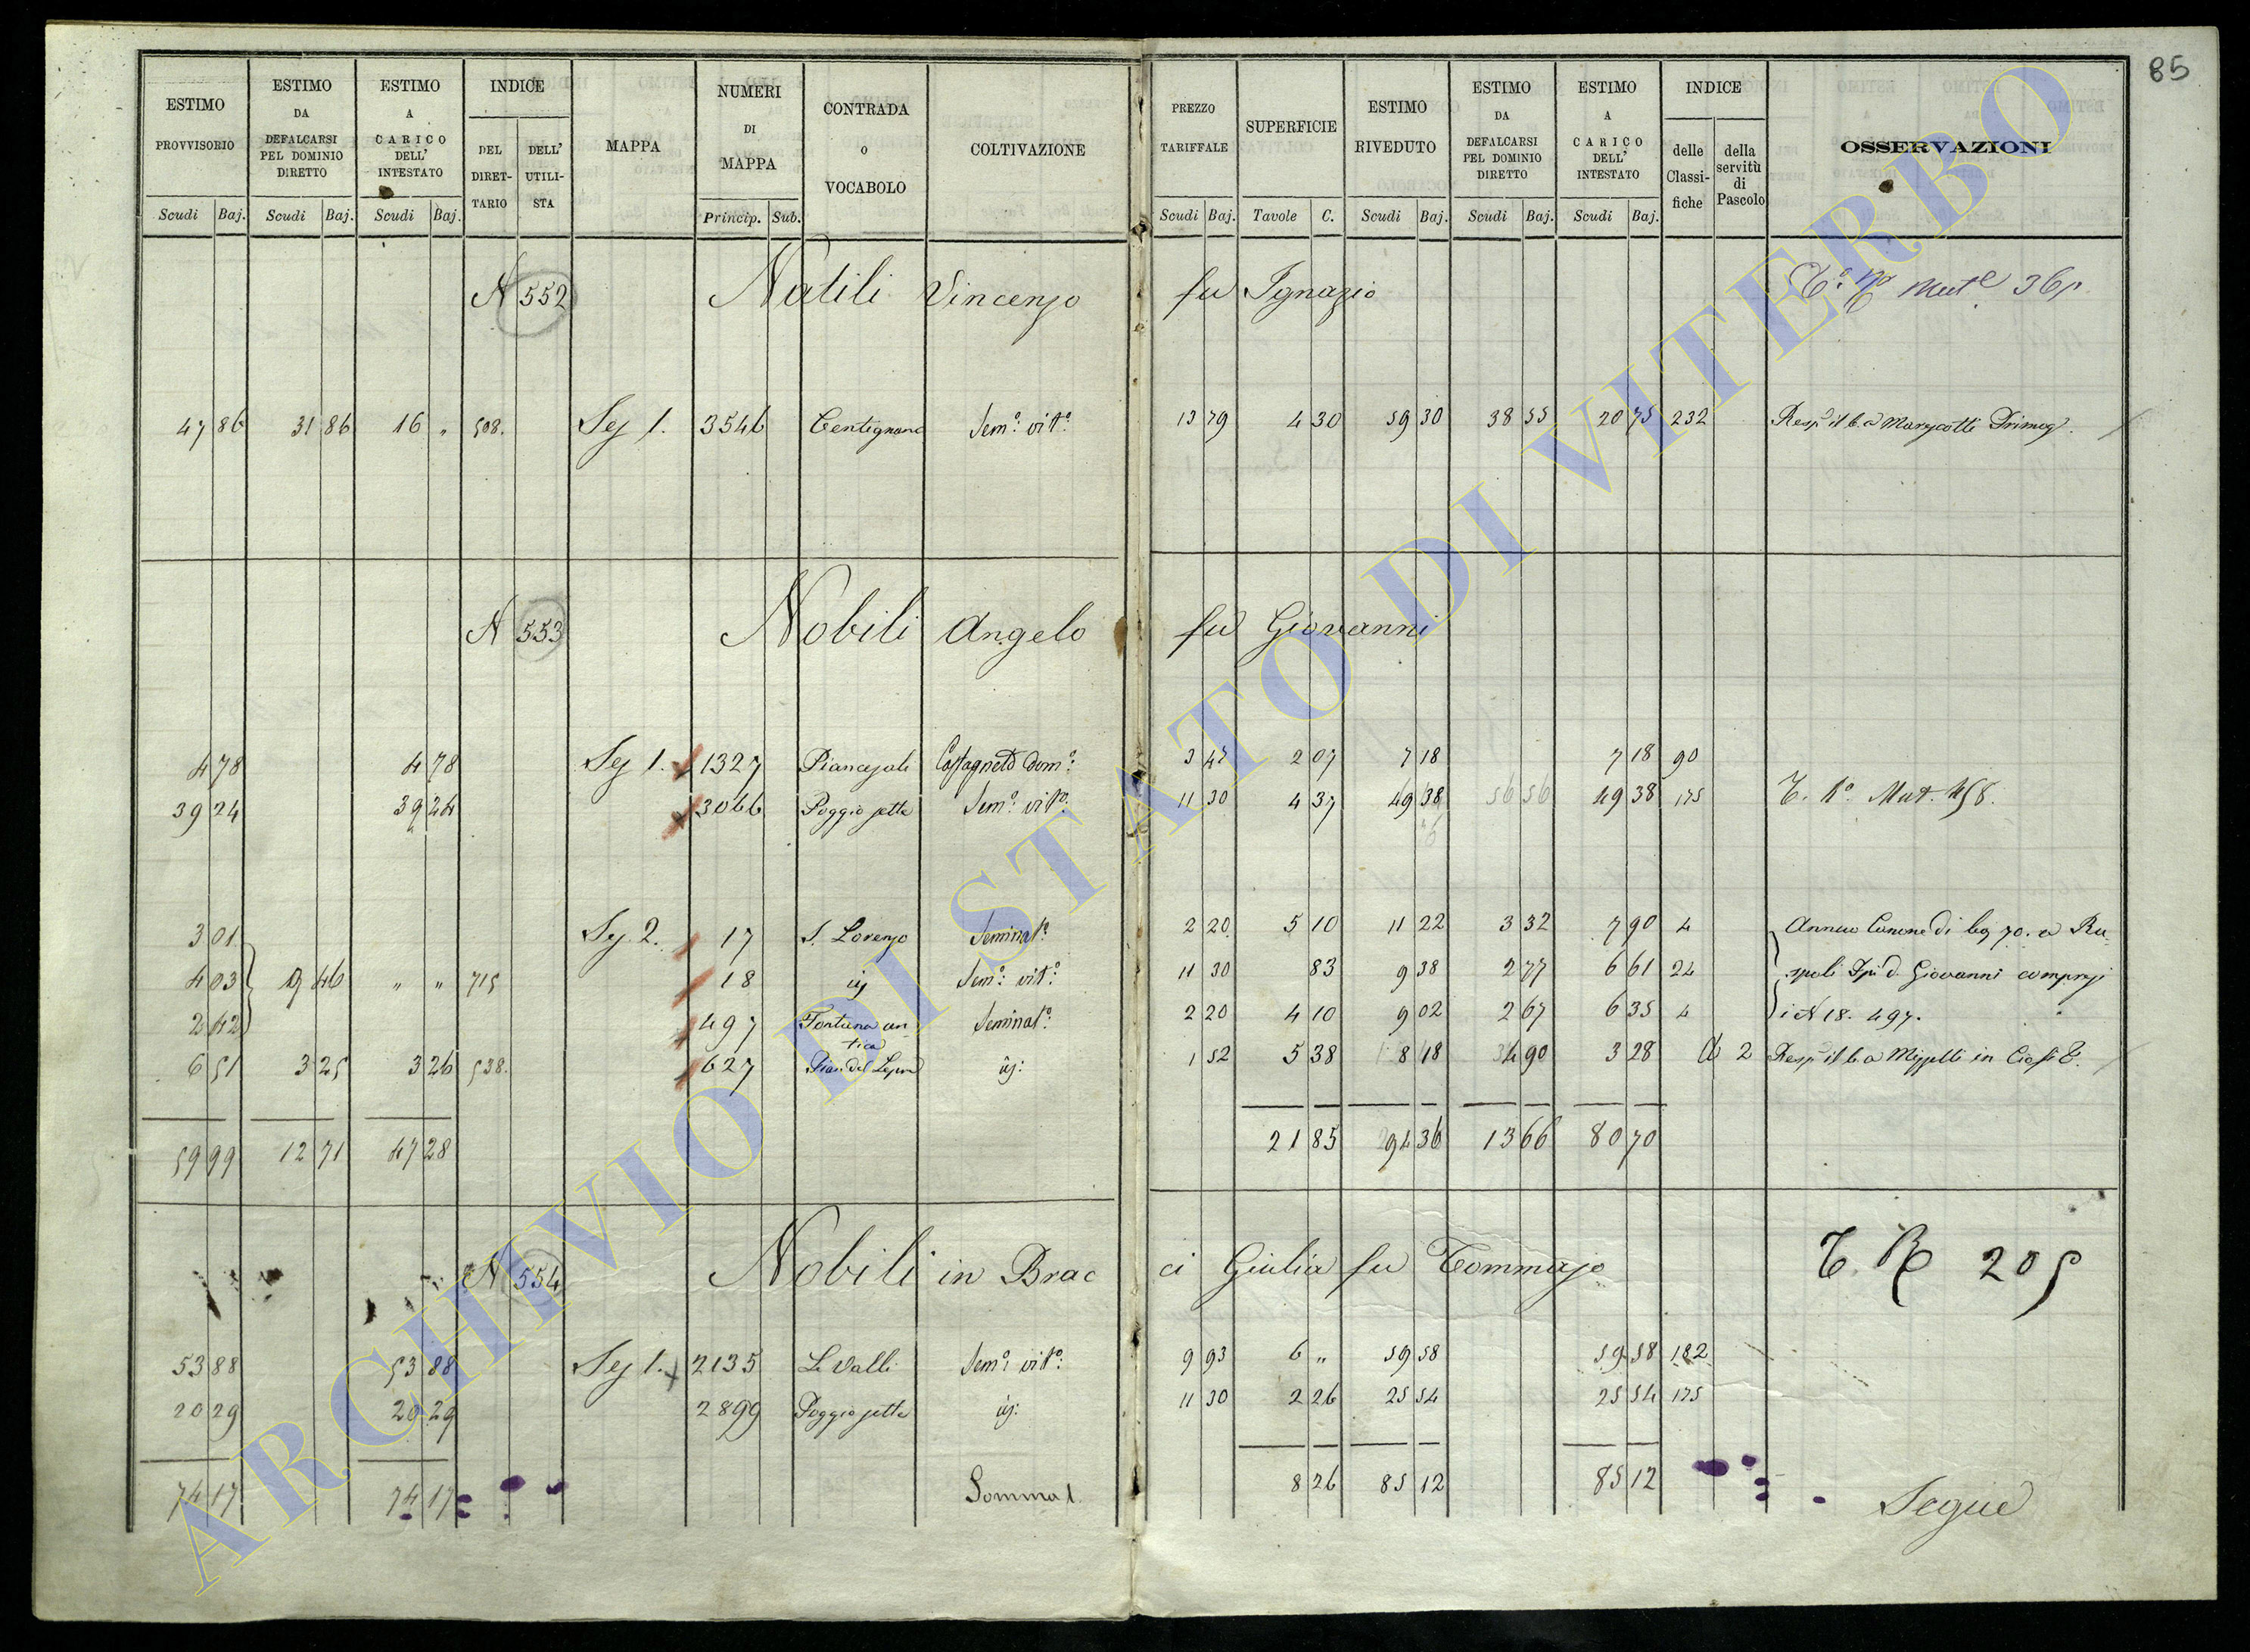 85
ESTIMO PROVVISORIO | ESTIMO DA DEFALCARSI PEL DOMINIO DIRETTO | ESTIMO A CARICO DELL' INTESTATO | INDICE DEL DIRET-TARIO | DELL' UTILI-STA | MAPPA | NUMERI DI MAPPA | CONTRADA O VOCABOLO | COLTIVAZIONE | PREZZO TARIFFALE | SUPERFICIE | ESTIMO RIVEDUTO | ESTIMO DA DEFALCARSI PEL DOMINIO DIRETTO | ESTIMO A CARICO DELL' INTESTATO | INDICE delle Classi-fiche | della servitù di Pascolo | OSSERVAZIONI
Scudi Baj. | Scudi Baj. | Scudi Baj. | Princip. Sub. | Scudi Baj. | Tavole C. | Scudi Baj. | Scudi Baj. | Scudi Baj.
N 552 Natili Vincenzo fu Ignazio
47 86 | 31 86 | 16 " | 508. | Sez 1. | 3546 | Centignano | Sem.º vit.º | 13 79 | 4 30 | 59 30 | 38 55 | 20 75 | 232
N 553 Nobili Angelo fu Giovanni
4 78 | 4 78 | Sez 1. | 1327 | Castagneto dom.º | 3 47 | 2 07 | 7 18 | 7 18 | 90
39 24 | 39 24 | 3066 | Poggio sette | Sem.º vit.º | 11 30 | 4 37 | 49 38 | 56 56 | 49 38 | 175
3 01 | Sez. 2. | 17 | S. Lorenzo | Seminat.º | 2 20 | 5 10 | 11 22 | 3 32 | 7 90 | 4 | Annuo Canone di 70. a Ru-
4 03 | 9 46 | " " | 715 | 18 | Sem.º vit.º | 11 30 | 83 | 9 38 | 2 77 | 6 61 | 24 | spoli Giovanni compresi
2 42 | 497 | Fontana an-tica | Seminat.º | 2 20 | 4 10 | 9 02 | 2 67 | 6 35 | 4 | i N 18. 497.
6 51 | 3 25 | 3 26 | 538. | 627 | 1 52 | 5 38 | 8 18 | 4 90 | 3 28 | 2
59 99 | 12 71 | 47 28 | 21 85 | 94 36 | 13 66 | 80 70
N 554 Nobili in Brac ci Giulia fu Tommaso
53 88 | 53 88 | Sez 1. | 2135 | Le Valli | Sem.º vit.º | 9 93 | 6 " | 59 58 | 59 58 | 182
20 29 | 20 29 | 2899 | Poggio sette | 11 30 | 2 26 | 25 54 | 25 54 | 175
74 17 | 74 17 | 8 26 | 85 12 | 85 12
Segue
ARCHIVIO DI STATO DI VITERBO